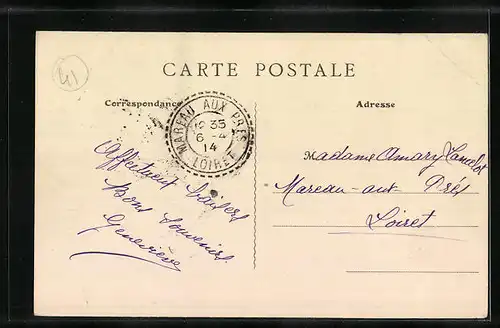 41
CARTE POSTALE
Correspondance
Adresse
MAREAU AUX PRÉS
12 35
6 - 4
14
LOIRET
Affectueux baisers
Bons Souvenirs
Geneviève
Madame Amary Lancelot
Mareau-aux-Prés
Loiret